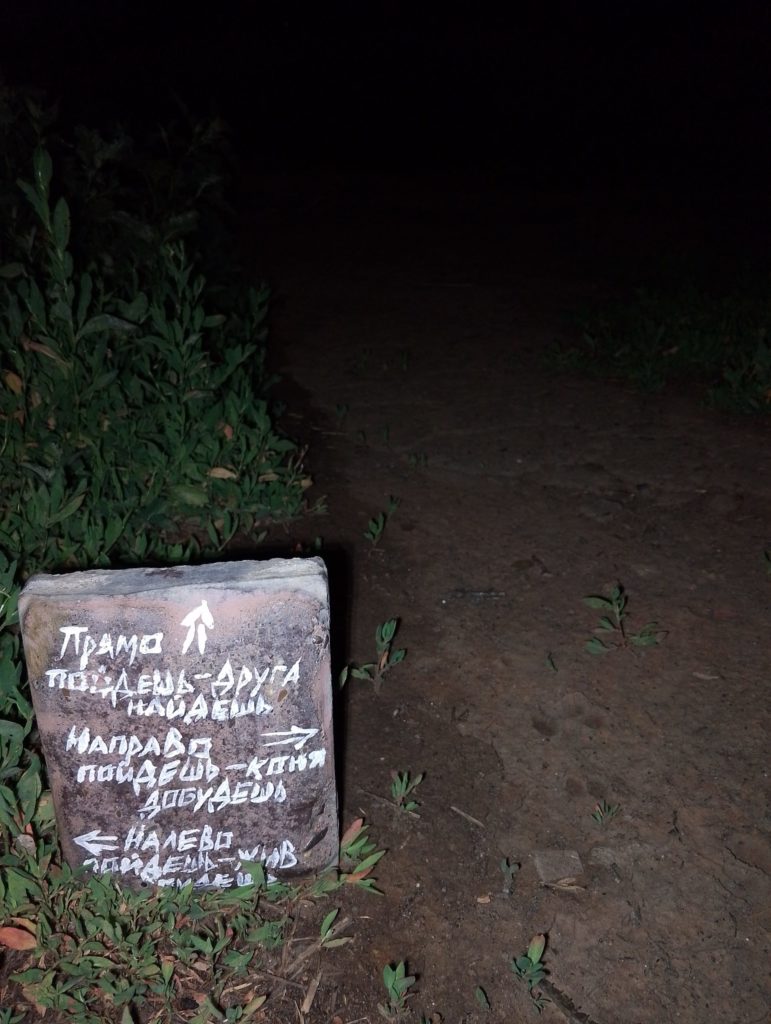 Прямо ↑
пойдешь-друга
найдешь
Направо →
пойдешь-коня
добудешь
← Налево
пойдешь-жив
будешь